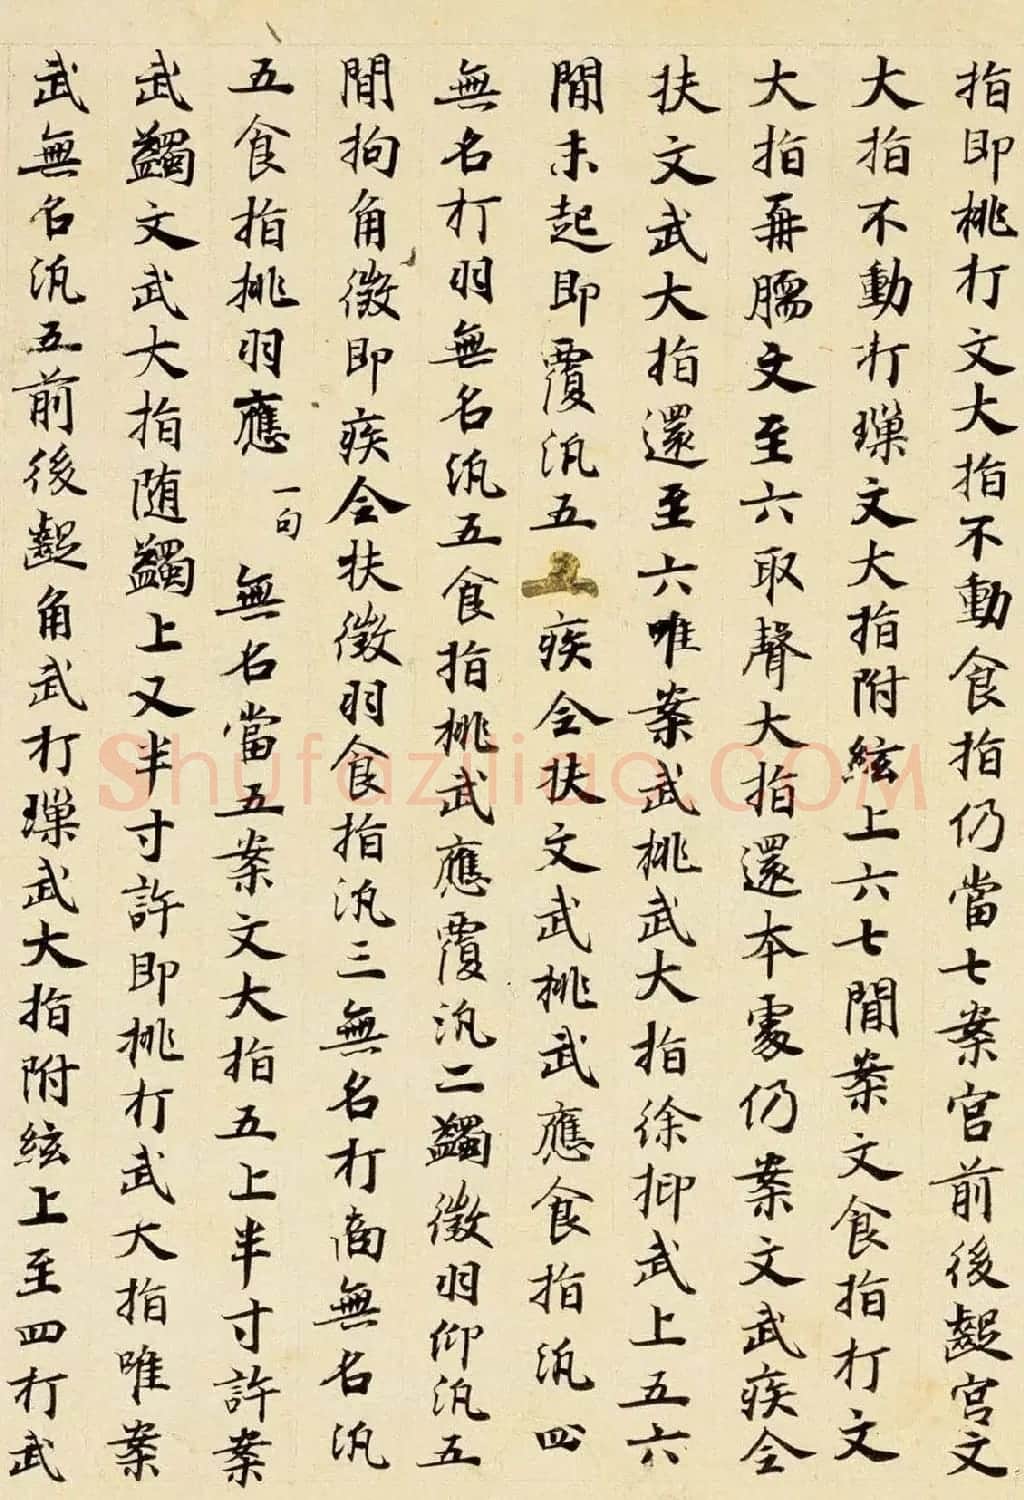 指即桃打文大指不動食指仍當七案宮前後齪宮文
大指不動打㻫文大指附絃上六七間案文食指打文
大指再臑文至六取聲大指還本處仍案文武疾全
扶文武大指還至六唯案武桃武大指徐抑武上五六
間未起即覆汎五五疾全扶文武桃武應食指汎四
無名打羽無名汎五食指桃武應覆汎二蠲徵羽仰汎五
間拘角徵即疾全扶徵羽食指汎三無名打商無名汎
五食指桃羽應 一句 無名當五案文大指五上半寸許案
武蠲文武大指随蠲上又半寸許即桃打武大指唯案
武無名汎五前後齪角武打㻫武大指附絃上至四打武
Shufaziliao.COM